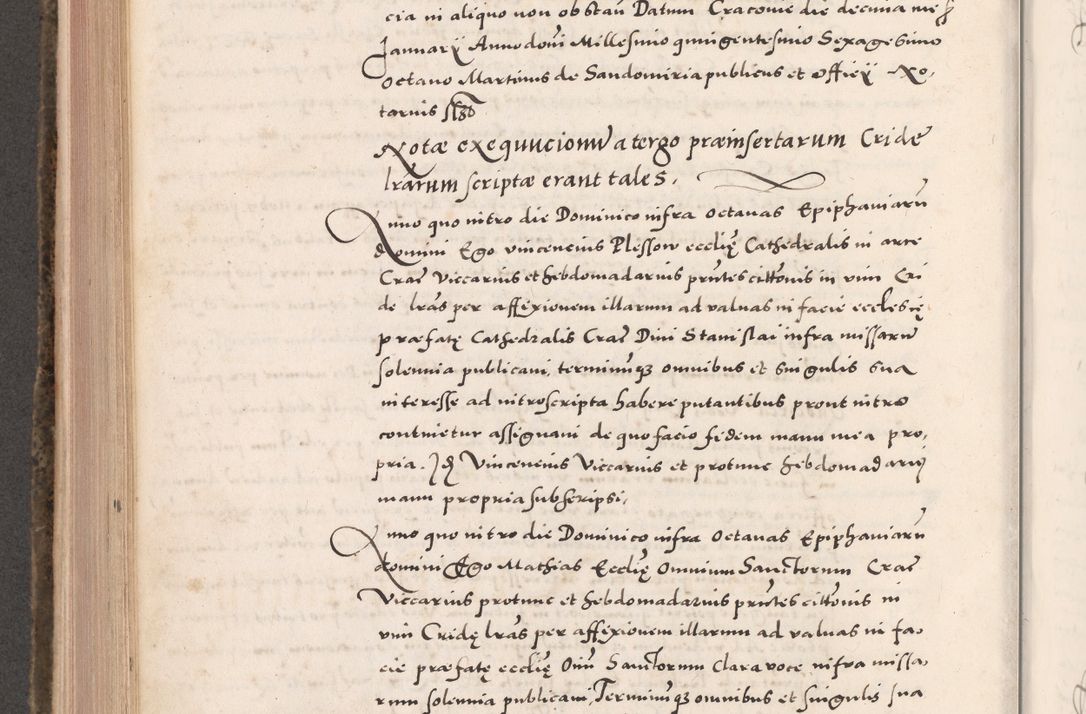 cia in aliquo non obstan̄ Datum Cracovie die decima men̄
Januarÿ Anno dom̄i Millesimo quingentesimo Sexagesimo
octavo Martinus de Sandomiria publicus et Officÿ No-
tarius sst
Notæ exequucionū a tergo præinsertarum Cridę
lrārum scriptæ erant tales.
Anno quo intro die Dominico infra octavas Epiphaniarū
domini Ego vincencius Plessow ecclīę Cathedralis in arce
Crac̄ Viccarius et hebdomadarius prn̄tes cittōnis in vim Cri
dę lrās per affixionem illarum ad valvas in facie ecclesię
præfatę Cathedralis Crac̄ Divi Stanislai infra missarū
solemnia publicavi, terminūq; omnibus et singulis sua
interesse ad introscripta habere putantibus prout intro
continetur assignavi de quo facio fidem manu mea pro-
pria. Id Vincencius Viccarius et protunc hebdomadariꝯ
manu propria subscripsi,
Anno quo intro die Dominico infra octavas Epiphaniarū
domini Ego Mathias Ecclīę Omnium Sanctorum Crac̄
Viccarius protunc et hebdomadarius prn̄tes cittōnis in
vim Cridę lrās per affixionem illarum ad valvas in fa-
cie præfatę ecclīę Om̄ Sanctorum clara voce infra missa-
rum solemnia publicavi, Terminūq; omnibus et singulis sua